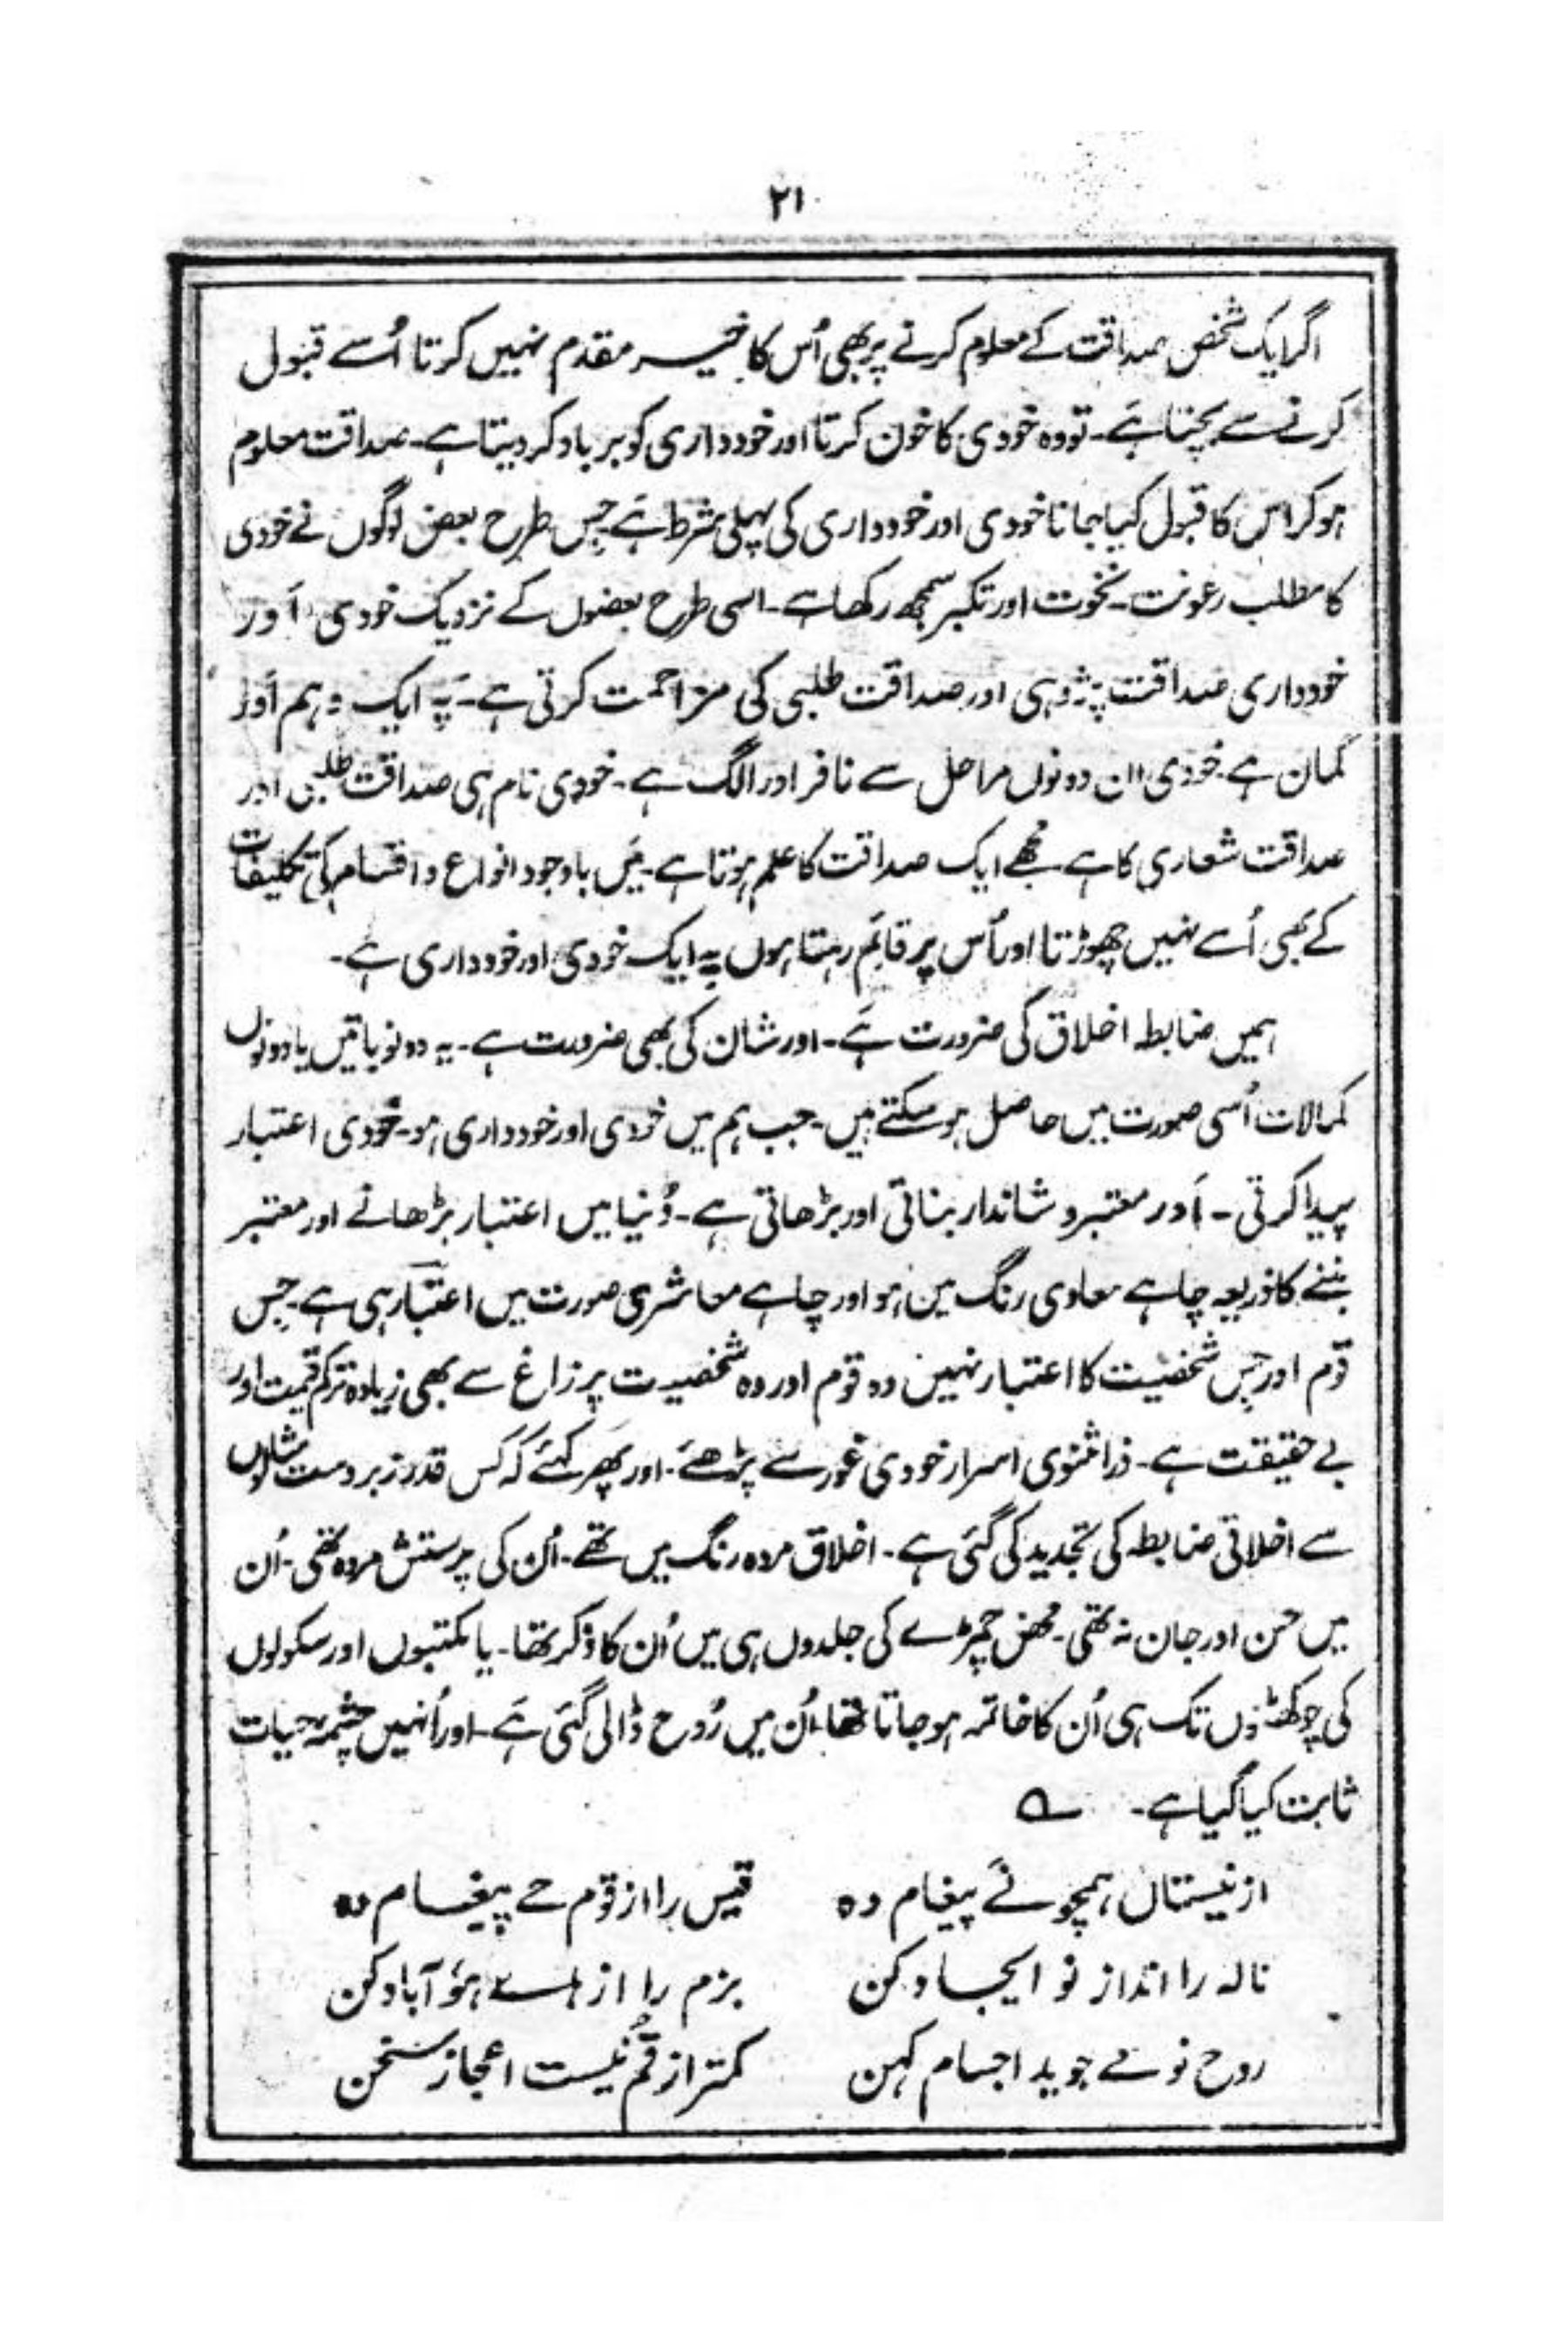 ۲۱
اگر ایک شخص صداقت کے معلوم کرنے پر بھی اُس کا خیر مقدم نہیں کرتا اُسے قبول
کرنے سے بچتا ہے۔ تو وہ خودی کا خون کرتا اور خودداری کو برباد کر دیتا ہے۔ صداقت معلوم
ہو کر اس کا قبول کیا جانا خودی اور خودداری کی پہلی شرط ہے جس طرح بعض لوگوں نے خودی
کا مطلب رعونت۔ نخوت اور تکبر سمجھ رکھا ہے۔ اسی طرح بعضوں کے نزدیک خودی اَور
خودداری صداقت پژوہی اور صداقت طلبی کی مزاحمت کرتی ہے۔ یہ ایک وہم اَور
گمان ہے۔ خودی ان دونوں مراحل سے نافر اور الگ ہے۔ خودی نام ہی صداقت طلبی اور
صداقت شعاری کا ہے مُجھے ایک صداقت کا علم ہوتا ہے۔ میَں باوجود انواع و اقسام کی تکلیفات
کے بھی اُسے نہیں چھوڑتا اور اُس پر قائم رہتا ہوں یہ ایک خودی اور خودداری ہے۔
ہمیں ضابطہ اخلاق کی ضرورت ہَے۔ اور شان کی بھی ضرورت ہے۔ یہ دونو باتیں یا دونوں
کمالات اُسی صورت میں حاصل ہو سکتے ہیں۔ جب ہم میں خودی اور خودداری ہو۔ خودی اعتبار
پیدا کرتی۔ اَور معتبر و شاندار بناتی اور بڑھاتی ہے۔ دُنیا میں اعتبار بڑھانے اور معتبر
بننے کا ذریعہ چاہے معاوی رنگ میں ہو اور چاہے معاشری صورت میں اعتبار ہی ہے۔ جس
قوم اور جس شخصیت کا اعتبار نہیں وہ قوم اور وہ شخصیت پر زاغ سے بھی زیادہ تر کم قیمت اور
بے حقیقت ہے۔ ذرا مثنوی اسرار خودی غور سے پڑھئے۔ اور پھر کہئے کہ کس قدر زبردست مثالوں
سے اخلاقی ضابطہ کی تجدید کی گئی ہے۔ اخلاق مردہ رنگ میں تھے۔ اُن کی پرستش مردہ تھی۔ اُن
میں حسن اور جان نہ تھی۔ محض چمڑے کی جلدوں ہی میں اُن کا ذکر تھا۔ یا مکتبوں اور سکولوں
کی چوکھٹوں تک ہی اُن کا خاتمہ ہو جاتا تھا اُن میں رُوح ڈالی گئی ہَے۔ اور اُنہیں چشمہ حیات
ثابت کیا گیا ہے۔ ؎
از نیستاں ہمچو نَے پیغام دہ    قیس را از قوم حے پیغام دہ
نالہ را انداز نو ایجاد کن    بزم را از ہاے ہو آباد کن
روح نو مے جوید اجسام کہن    کمتر از قُم نیست اعجاز سخن